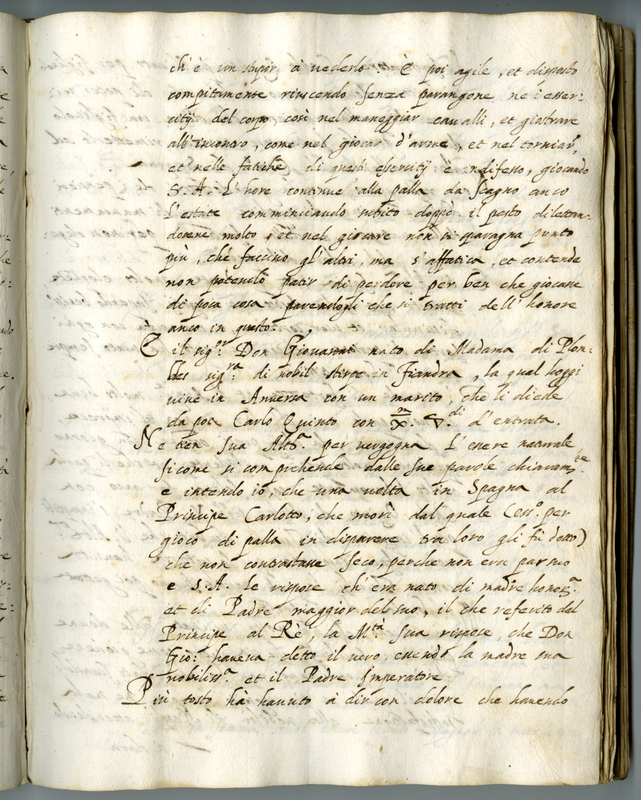 ch'è un stupor à vederlo. È poi agile, et disposto
compitamente riuscendo senza parangone ne i esser-
citij del corpo, così nel maneggiar cavalli, et giostrare
all'incontro, come nel giocar d'arme, et nel torniar,
et nelle fatiche di questi esercitij è indefesso, giocando
S. A. l'hore continue alla palla da scagno anco
l'estate comminciando subito doppò il pasto dilettan-
dosene molto, et nel giocare non si sparagna punto
più, che faccino gl'altri, ma s'affatica, et contende
non potendo patir di perdere per ben che giocasse
di poca cosa parendogli che si tratti dell'honore
anco in questo.
È il sig.or Don Giovanni nato di Madama di Plom-
bes sig.ra di nobil stirpe in Fiandra, la qual hoggi
vive in Anversa con un marito, che li diede
da poi Carlo Quinto con di d'entrata.
Ne tien Sua Altz.a per vergogna l'esser naturale
si come si comprehende dalle sue parole chiaram.te
e intendo io, che una volta in Spagna al
Principe Carlotto, che morì dal quale (ess.o per
gioco di palla in disparere tra loro gli fù detto)
che non contrastasse seco, perche non era par suo
e S. A. le rispose ch'era nato di madre honor.a
et di Padre maggior del suo, il che referito dal
Principe al Rè, la M.tà Sua rispose, che Don
Gio: haveva detto il vero, essendo la madre sua
nobiliss.a et il Padre Imperatore
Più tosto hà havuto à dir con dolore che havendo